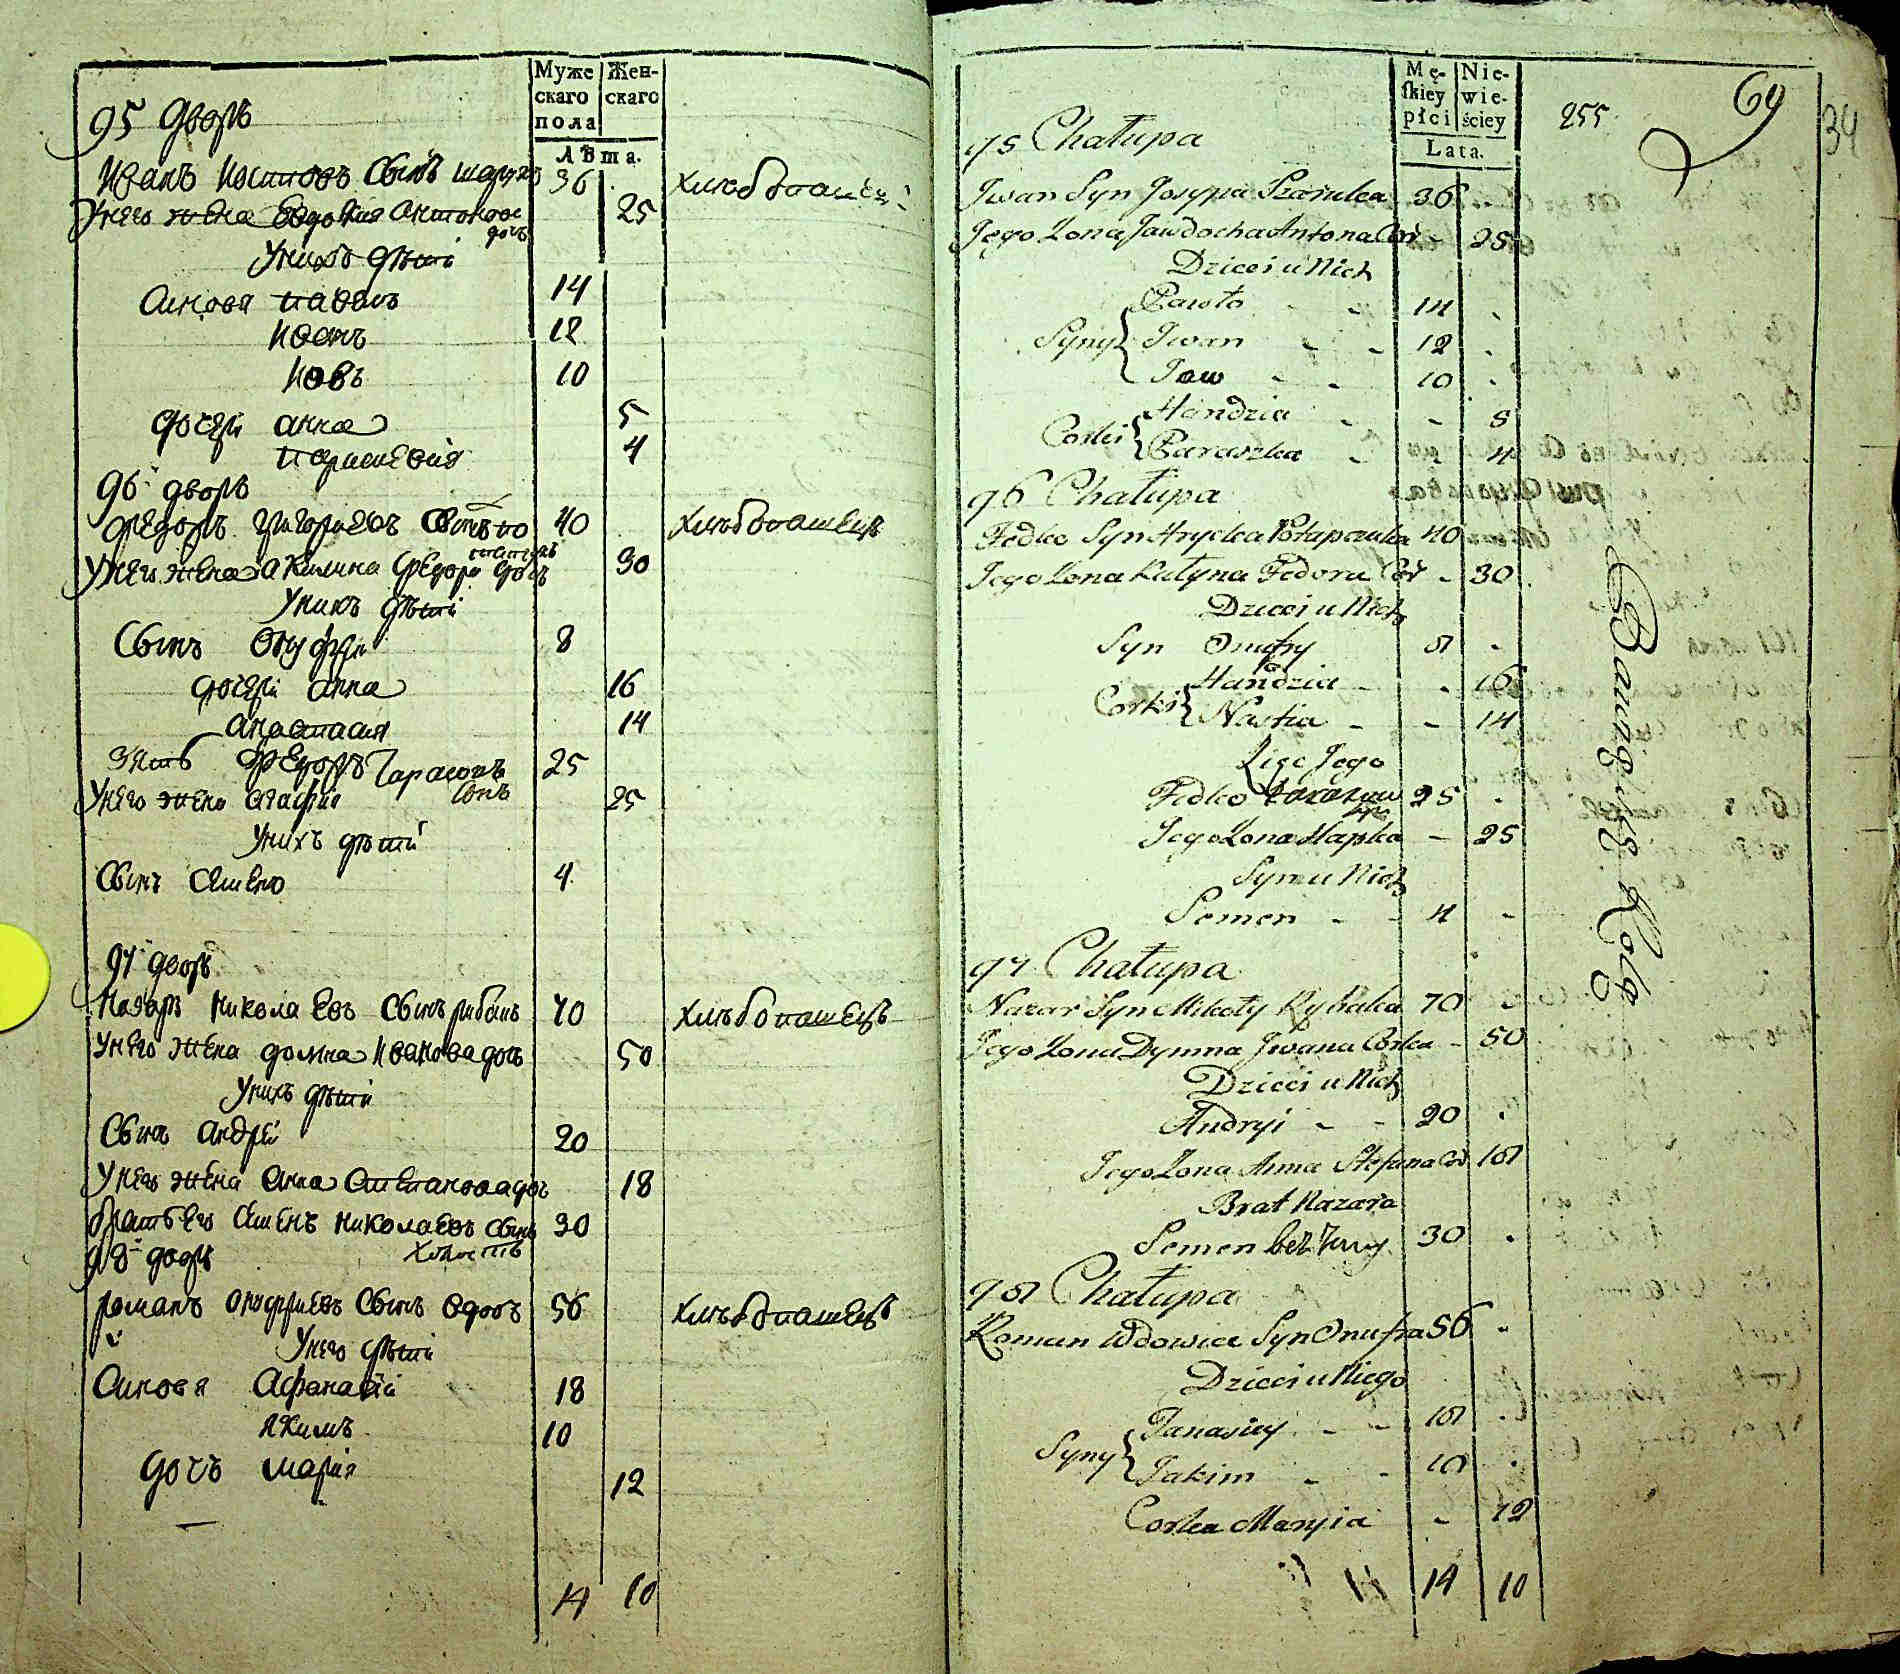 Муже
скаго
пола
Жен-
скаго
Лѣта.
95 дворъ
Иванъ Иосиповъ сынъ 36 хлѣбопашецъ
У него жена Евдокия Антонова дочь 25
У нихъ дѣти
Синовя Павелъ 14
Иванъ 12
Иовъ 10
дочери Анна 5
Параскевия 4
96 дворъ
Федоръ Григориевъ сынъ 40 хлѣбопашецъ
У него жена Акилина Федора дочь 30
У нихъ дѣти
Сынъ Онуфри 8
дочери Анна 16
Анастасия 14
зять Федоръ Тарасовъ сынъ 25
У него жена Агафия 25
У нихъ дѣти
Сынъ Семенъ 4
97 дворъ
Назаръ Николаевъ сынъ рибакъ 70 хлѣбопашецъ
У него жена Домна Иванова дочь 50
У нихъ дѣти
Сынъ Андрей 20
У него жена Анна Степанова дочь 18
братъ его Семенъ Николаевъ сынъ 30
холостъ
98 дворъ
Романъ Онофриевъ сынъ вдовъ 56 хлѣбопашецъ
й
У него дѣти
Синовя Афанасий 18
Якимъ 10
дочь Мария 12
14 10
Mę-
skiey
płci
Nie-
wie-
ściey
Lata.
255
69
34
95 Chałupa
Jwan Syn Josypa Szaruka 36
Jego Zona Jawdocha Antona Cór 25
Dzieci u Nich
Syny Pawło 14
Jwan 12
Jow 10
Corki Handzia 5
Paraszka 4
96 Chałupa
Fedko Syn Hrycka Potapczuka 40
Jego Zona Kiłyna Fedora Cór 30
Dzieci u Nich
Syn Onufry 8
Corki Handzia 16
Nastia 14
Zięć Jego
Fedko Tarasow 25
Jego Zona Hapka 25
Syn u Nich
Semen 4
97 Chałupa
Nazar Syn Mikoły Rybaka 70
Jego Zona Dymna Jwana Corka 50
Dzieci u Nich
Andryi 20
Jego Zona Anna Stefana Cór 18
Brat Nazara
Semen bez Żony 30
98 Chałupa
Roman Wdowiec Syn Onufra 56
Dzieci u Niego
Syny Tanasiey 18
Jakim 10
Corka Maryia 12
14 10